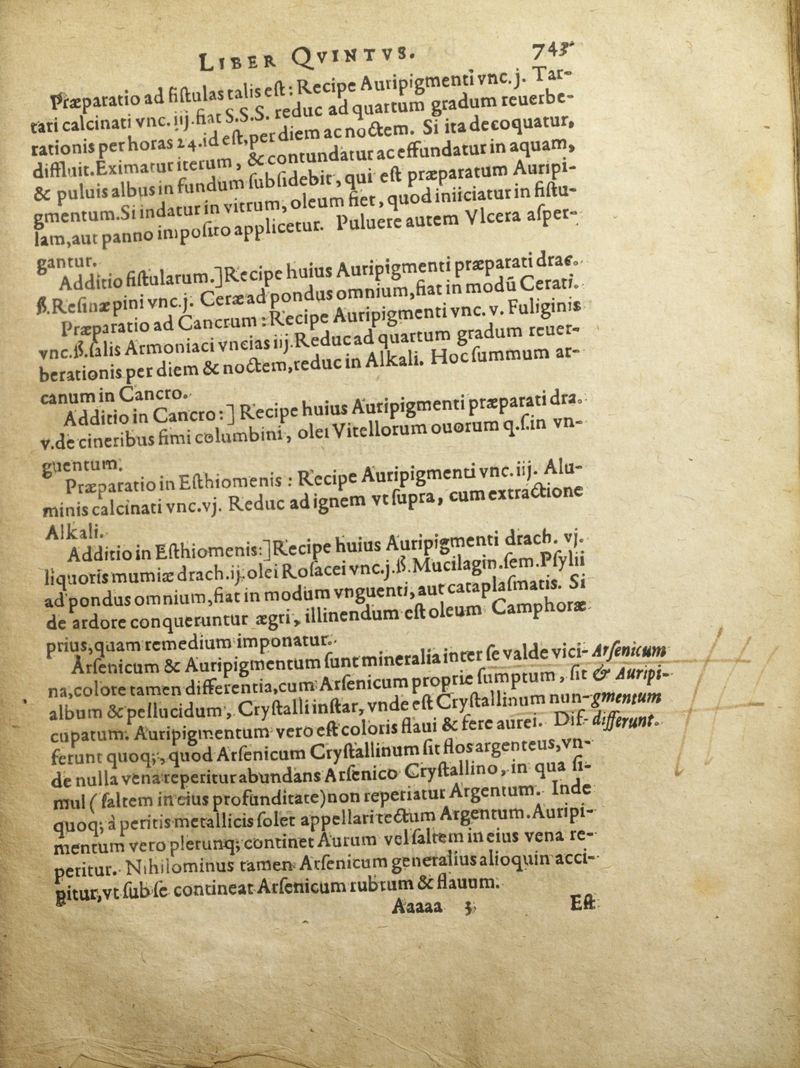 LIBER QVINTVS. 741
Præparatio ad fiſtulas talis eſt: Recipe Auripigmenti vnc.j. Tar-
tari calcinati vnc.iij.fiat S.S.S. reduc ad quartum gradum reuerbe-
rationis per horas 24.id eſt, per diem ac noctem. Si ita decoquatur,
diffluit. Eximatur iterum, & contundatur ac effundatur in aquam,
& puluis albus in fundum ſubſidebit, qui eſt præparatum Auripi-
gmentum. Si indatur in vitrum, oleum fiet, quod iniiciatur in fiſtu-
lam, aut panno impoſito applicetur. Puluere autem Vlcera aſper-
gantur.
Additio fiſtularum.] Recipe huius Auripigmenti præparati drac.
ß. Reſinæ pini vnc.j. Ceræ ad pondus omnium, fiat in modũ Cerati.
Præparatio ad Cancrum: Recipe Auripigmenti vnc.v. Fuliginis
vnc.ß. ſalis Armoniaci vncias iij. Reduc ad quartum gradum reuer-
berationis per diem & noctem, reduc in Alkali. Hoc ſummum ar-
canum in Cancro.
Additio in Cancro:] Recipe huius Auripigmenti præparati dra.
v. de cineribus fimi columbini, olei Vitellorum ouorum q.ſ. in vn-
guentum.
Præparatio in Eſthiomenis: Recipe Auripigmenti vnc.iij. Alu-
minis calcinati vnc.vj. Reduc ad ignem vt ſupra, cum extractione
Alkali.
Additio in Eſthiomenis:] Recipe huius Auripigmenti drach. vj.
liquoris mumiæ drach.ij. olei Roſacei vnc.j.ß. Mucilagin. ſem. Pſylii
ad pondus omnium, fiat in modum vnguenti, aut cataplaſmatis. Si
de ardore conqueruntur ægri, illinendum eſt oleum Camphoræ
prius, quam remedium imponatur.
Arſenicum & Auripigmentum ſunt mineralia inter ſe valde vici- Arſenicum
na, colore tamen differentia, cum Arſenicum proprie ſumptum, ſit & Auripi-
album & pellucidum, Cryſtalli inſtar, vnde eſt Cryſtallinum nun- gmentum
cupatum. Auripigmentum vero eſt coloris flaui & fere aurei. Dif- differunt.
ferunt quoq;, quod Arſenicum Cryſtallinum ſit flos argenteus, vn-
de nulla vena reperitur abundans Arſenico Cryſtallino, in qua ſi-
mul (ſaltem in eius profunditate) non reperiatur Argentum. Inde
quoq; à peritis metallicis ſolet appellari tectum Argentum. Auripi-
mentum vero plerunq; continet Aurum vel ſaltem in eius vena re-
peritur. Nihilominus tamen Arſenicum generalius alioquin acci-
pitur, vt ſub ſe contineat Arſenicum rubrum & flauum.
Aaaaa 3 Eſt